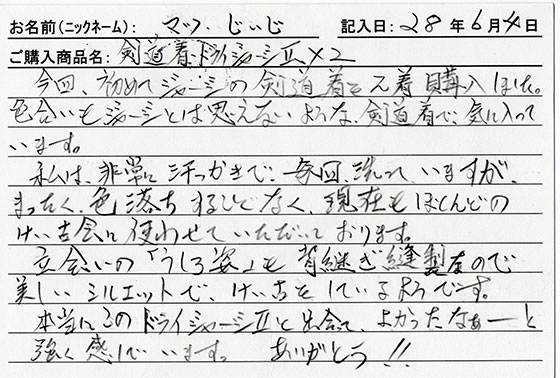 お名前（ニックネーム）： マック じいじ 記入日：28年6月4日
ご購入商品名：剣道着ドライジャージⅡ×2
今回、初めてジャージの剣道着を2着購入しました。
色合いもジャージとは思えないような、剣道着で、気に入って
います。
私は、非常に汗っかきで、毎回、洗っていますが、
まったく、色落ちすることなく、現在もほとんどの
けい古会に使わせていただいております。
立会いの「うしろ姿」も背継ぎ縫製なので
美しいシルエットで、けい古をしているようです。
本当にこのドライジャージⅡと出会って、よかったなぁーと
強く感じています。 ありがとう!!